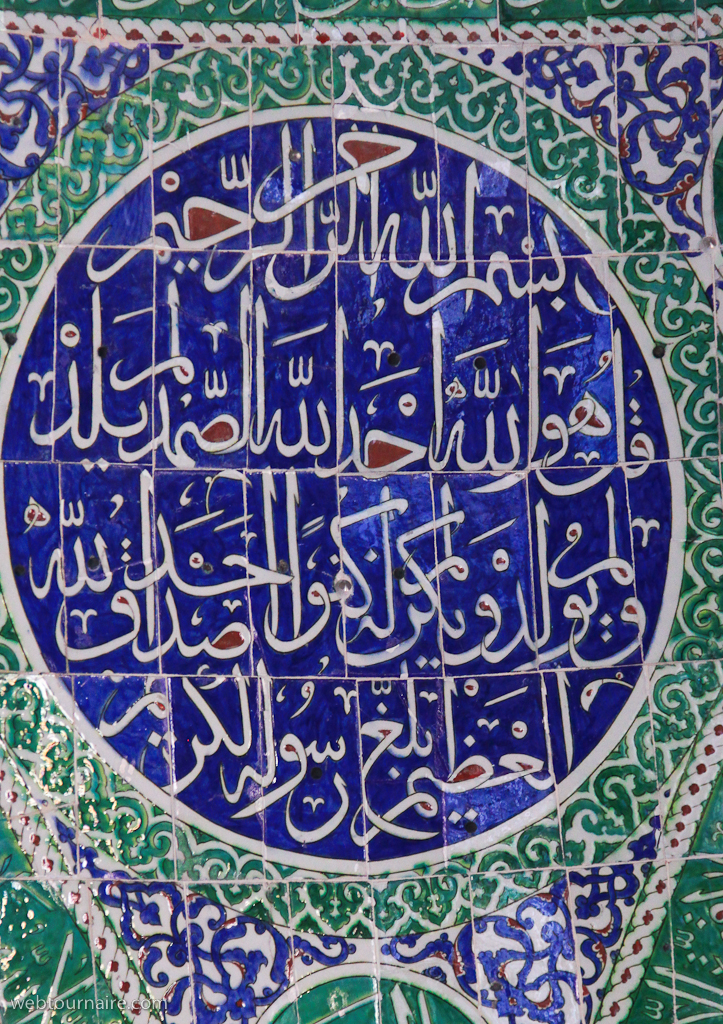 بسم الله الرحمن الرحيم
قل هو الله احد الله الصمد لم يلد
ولم يولد ولم يكن له كفوا احد صدق الله
العظيم بلغ رسوله الكريم
webtournaire.com